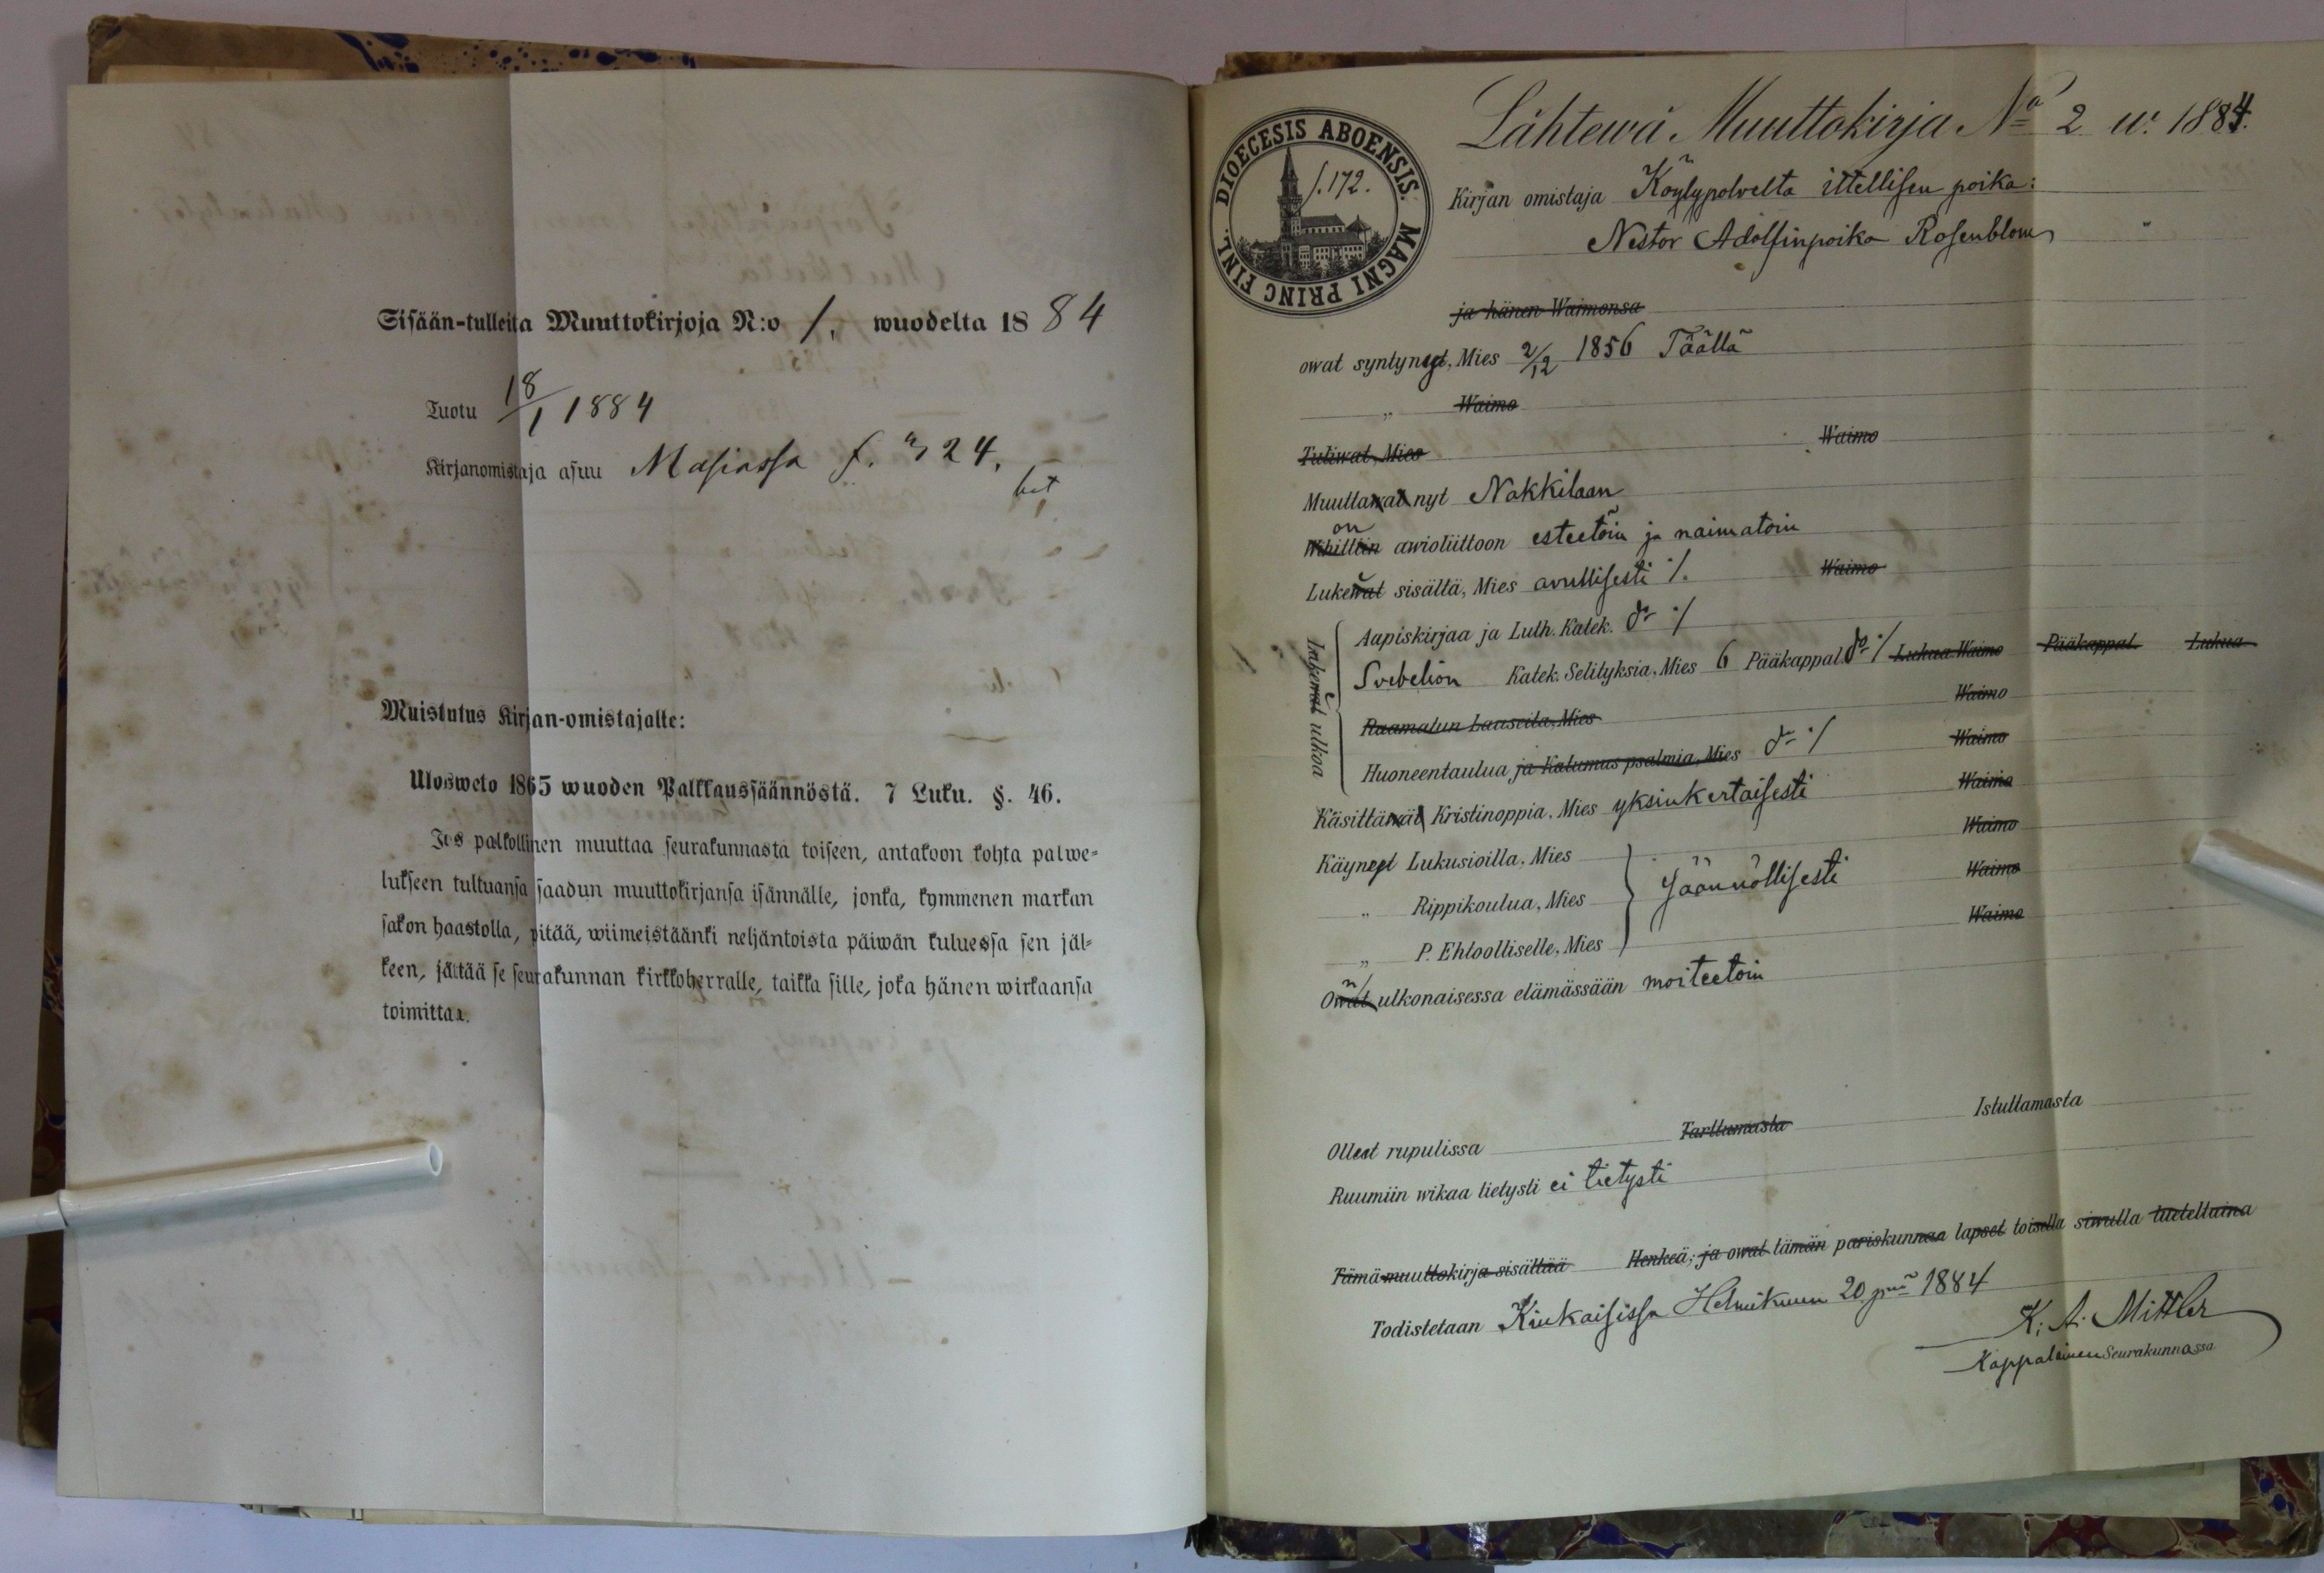 Sisään-tulleita Muuttokirjoja N:o 1. wuodelta 1884
Tuotu 18/1 1884
Kirjanomistaja asuu Masiassa f. 324.
Muistutus Kirjan-omistajalle:
Ulosweto 1865 wuoden Palkkaussäännöstä. 7 Luku. §. 46.
Jos palkollinen muuttaa seurakunnasta toiseen, antakoon kohta palwe=
lukseen tultuansa saadun muuttokirjansa isännälle, jonka, kymmenen markan
sakon haastolla, pitää, wiimeistäänki neljäntoista päiwän kuluessa sen jäl=
keen, jättää se seurakunnan kirkkoherralle, taikka sille, joka hänen wirkaansa
toimittaa.
DIOECESIS ABOENSIS. MAGNI PRINC FINL.
f. 172.
Lähtewä Muuttokirja No 2 w. 1884.
Kirjan omistaja Köylypolvelta ittellisen poika:
Nestor Adolfinpoika Rosenblom
ja hänen Waimonsa
owat syntynyt, Mies 2/12 1856 Täällä
„ Waimo
Tuliwat, Mies Waimo
Muuttawat nyt Nakkilaan
on
Wihittiin awioliittoon esteetöin ja naimatoin
Lukewat sisältä, Mies avullisesti ./. Waimo
Lukewat ulkoa
Aapiskirjaa ja Luth. Katek. do ./.
Svebelion Katek. Selityksia, Mies 6 Pääkappal. do ./. Lukua Waimo Pääkappal. Lukua
Raamatun Lauseita, Mies Waimo
Huoneentaulua ja Katumus psalmia, Mies do ./. Waimo
Käsittäwät Kristinoppia, Mies yksinkertaisesti Waimo
Käynyt Lukusioilla, Mies Waimo
„ Rippikoulua, Mies säännöllisesti Waimo
„ P. Ehtoolliselle, Mies Waimo
Owat ulkonaisessa elämässään moiteetoin
Olleet rupulissa Tarttumasta Istuttamasta
Ruumiin wikaa tietysti ei tietysti
Tämä muuttokirja sisältää Henkeä; ja owat tämän pariskunnan lapset toisella siwulla luetellaina
Todistetaan Kiukaisissa Helmikuun 20 pnä 1884
K. A. Mittler
Kappalainen Seurakunnassa